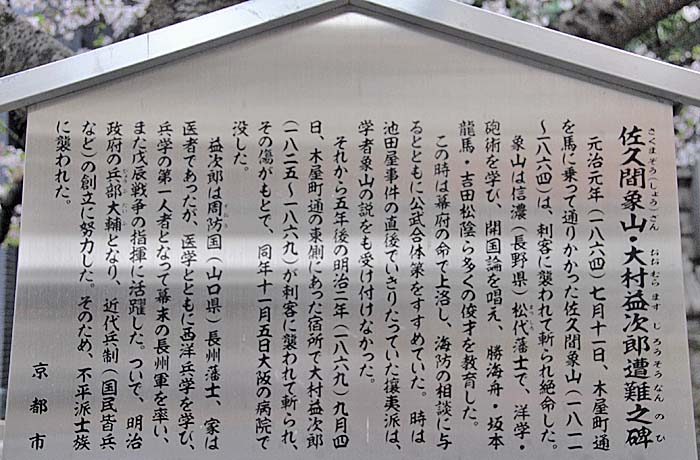 佐久間象山・大村益次郎遭難之碑
さくまぞう(しょう)ざん おおむらますじろうそうなんのひ
元治元年(一八六四)七月十一日、木屋町通
を馬に乗って通りかかった佐久間象山(一八一一
〜一八六四)は、刺客に襲われて斬られ絶命した。
象山は信濃(長野県)松代藩士で、洋学・
まつしろ
砲術を学び、開国論を唱え、勝海舟・坂本
龍馬・吉田松陰ら多くの俊才を教育した。
この時は幕府の命で上洛し、海防の相談に与
るとともに公武合体策をすすめていた。時は
池田屋事件の直後でいきりたっていた攘夷派は、
学者象山の説をも受け付けなかった。
それから五年後の明治二年(一八六九)九月四
日、木屋町通の東側にあった宿所で大村益次郎
(一八二五〜一八六九)が刺客に襲われて斬られ、
その傷がもとで、同年十一月五日大阪の病院で
没した。
益次郎は周防国(山口県)長州藩士、家は
すおう
医者であったが、医学とともに西洋兵学を学び、
兵学の第一人者となって幕末の長州軍を率い、
また戊辰戦争の指揮に活躍した。ついで、明治
政府の兵部大輔となり、近代兵制(国民皆兵
など)の創立に努力した。そのため、不平派士族
に襲われた。
京都市